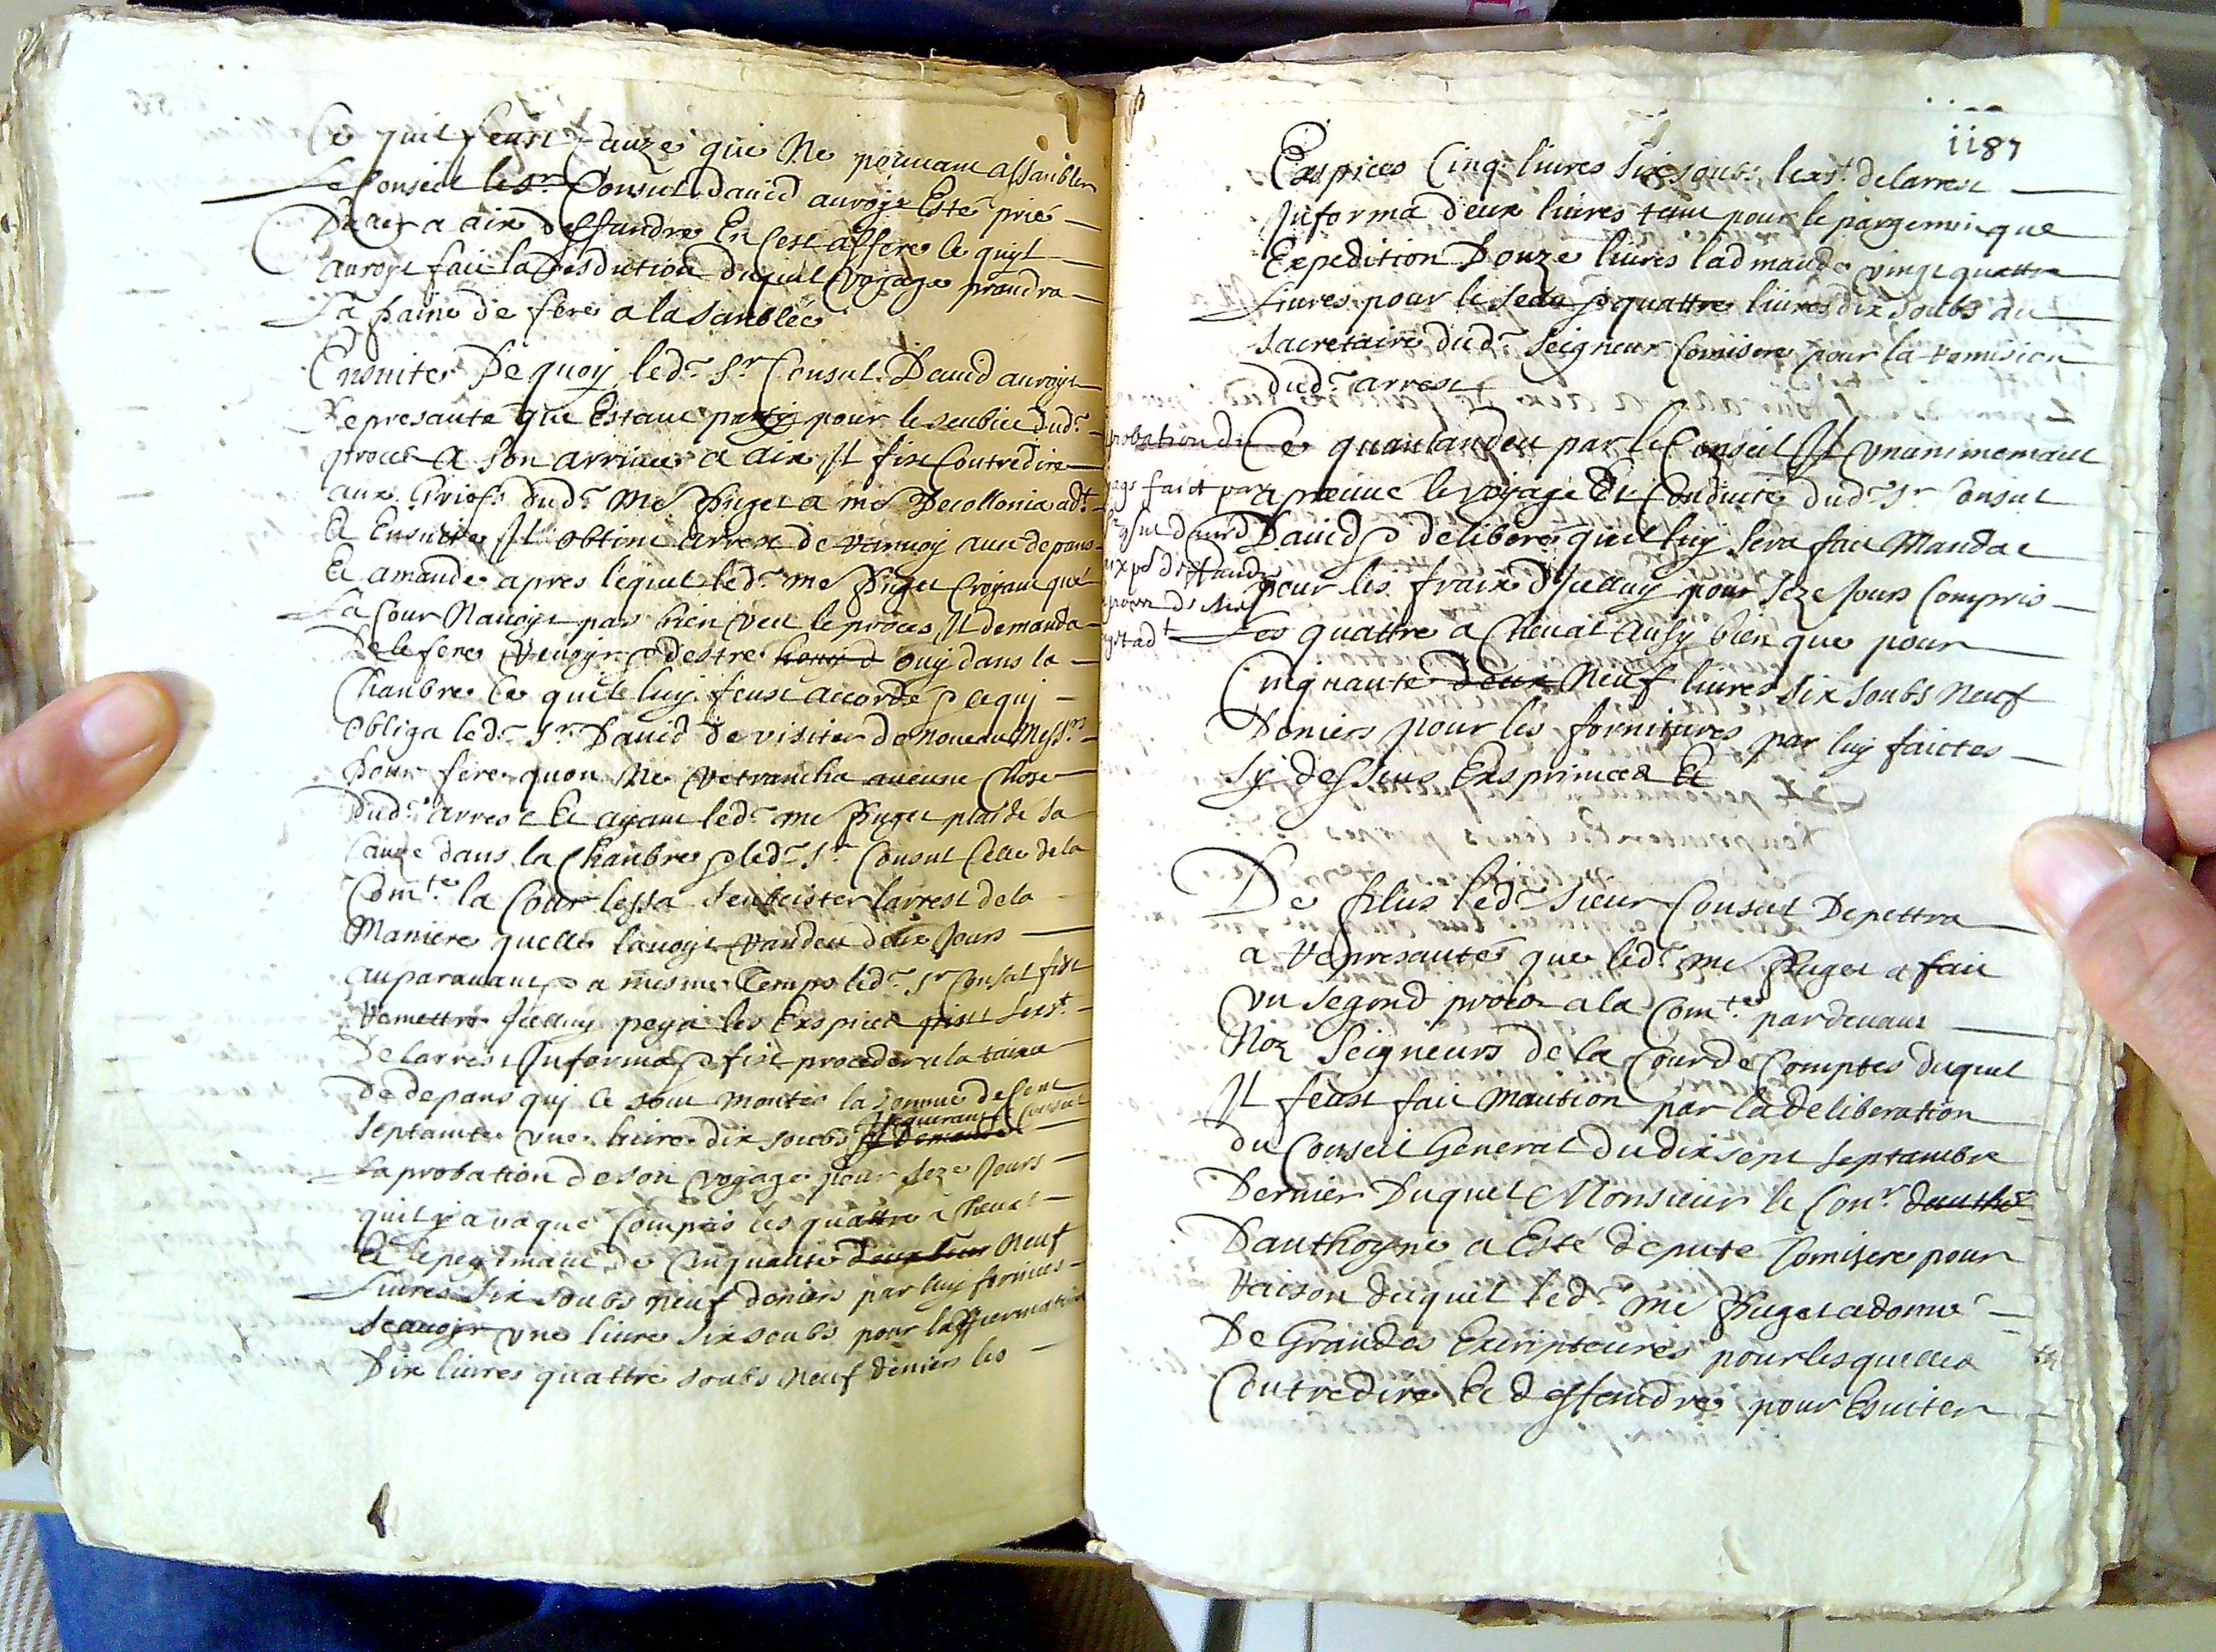 Ce quil feust cauze que Ne pouvant assanbler
Le Conseil le Sr Consul david auroyt Esté prié
Daler a aix deffandre En cest affere le quyl
auroyt faict la duquel voyage prandra
La paine de fere a lasanblée
Ensuite De quoy led. Sr Consul David auroyt
Represanté que Estant party pour le dud.
proces a son arrivee a aix Il fist Contredire
aux Griefs dud. Me Puget a me Decollonia adt
Et Ensuitte Il obtint arrest de ranvoy avec depans
Et amande apres lequel led. me Puget Croyant que
La Cour Navoyt pas bien veu le proces, Il demanda
De le fere revoyr & destre ouy dans la
Chanbre Ce quil luy feust accordé & a quy
obliga led. Sr David de visiter de nouveau Messrs
pour fere quon Ne retrancha aucune Chose
dud. arrest Et ayant led. me Puget plaide sa
Cauze dans la Chanbre & led. Sr Consul Celle de la
Comte. la Cour lessa larrest de la
Maniere quelle lavoyt randeu deux Jours
auparavant & a mesme Temps led. Sr Consul fist
Remettre Icelluy peya les Exspices lexst
De larrest Informa & fist proceder a la taixa
De depans quy ce sont montes la somme de Cent
septante une livre dix soubs Requerant Consul
La probation de son voyage pour seze Jours
quil y a vaqué Compris les quattre a Cheval
Et le peyemant de Cinquante deux livres Neuf
Livres six soubs neuf deniers par luy fornies
scavoyr une livre six soubs pour laffirmation
Dix livres quattre soubs Neuf deniers les
1187
Exspices Cinq livres six soubs lexst. de larrest
Informa deux livres tant pour le pargemin que
Expedition Douze livres lad mande vingt quattre
Livres pour le & quattre livres dix soubs au
Sacretaire dud. Seigneur Comisere pour la remision
dud. arrest
probation du
yage faict par
Sr david
aix po deffandre
proces de Me
get adt
Ce quantandeu par le Conseil Il unanimemant
apreuve le voyage Et Conduitte dud. Sr Consul
David & deliberé quil luy sera faict Mandat
pour les fraix dIcelluy pour seze Jours Compris
Les quattre a Cheval ausy bien que pour
Cinquante deux Neuf livres six soubs Neuf
Deniers pour les fornitures par luy faictes
sy dessus Exsprimees Et
De plus led. Sieur Consul Depettra
a Represanté que led. me Puget a faict
un segond proces a la Comte. pardevant
Noz Seigneurs de la Cour de Comptes duquel
Il feust faict Mantion par la deliberation
du Conseil General du dix sept septanbre
Dernier Duquel Monsieur le Conr. dantho
Danthoyne a Esté deputé Comisere pour
Raison duquel led. me Puget a donné
De Grandes Escripteures pour lesquelles
Contredire Et deffandre pour Esviter